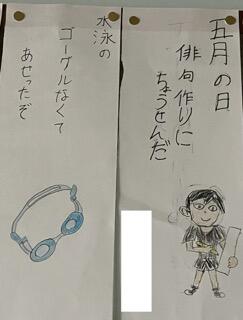 五月の日
俳句作りに
ちょうせんだ
水泳の
ゴーグルなくて
あせったぞ